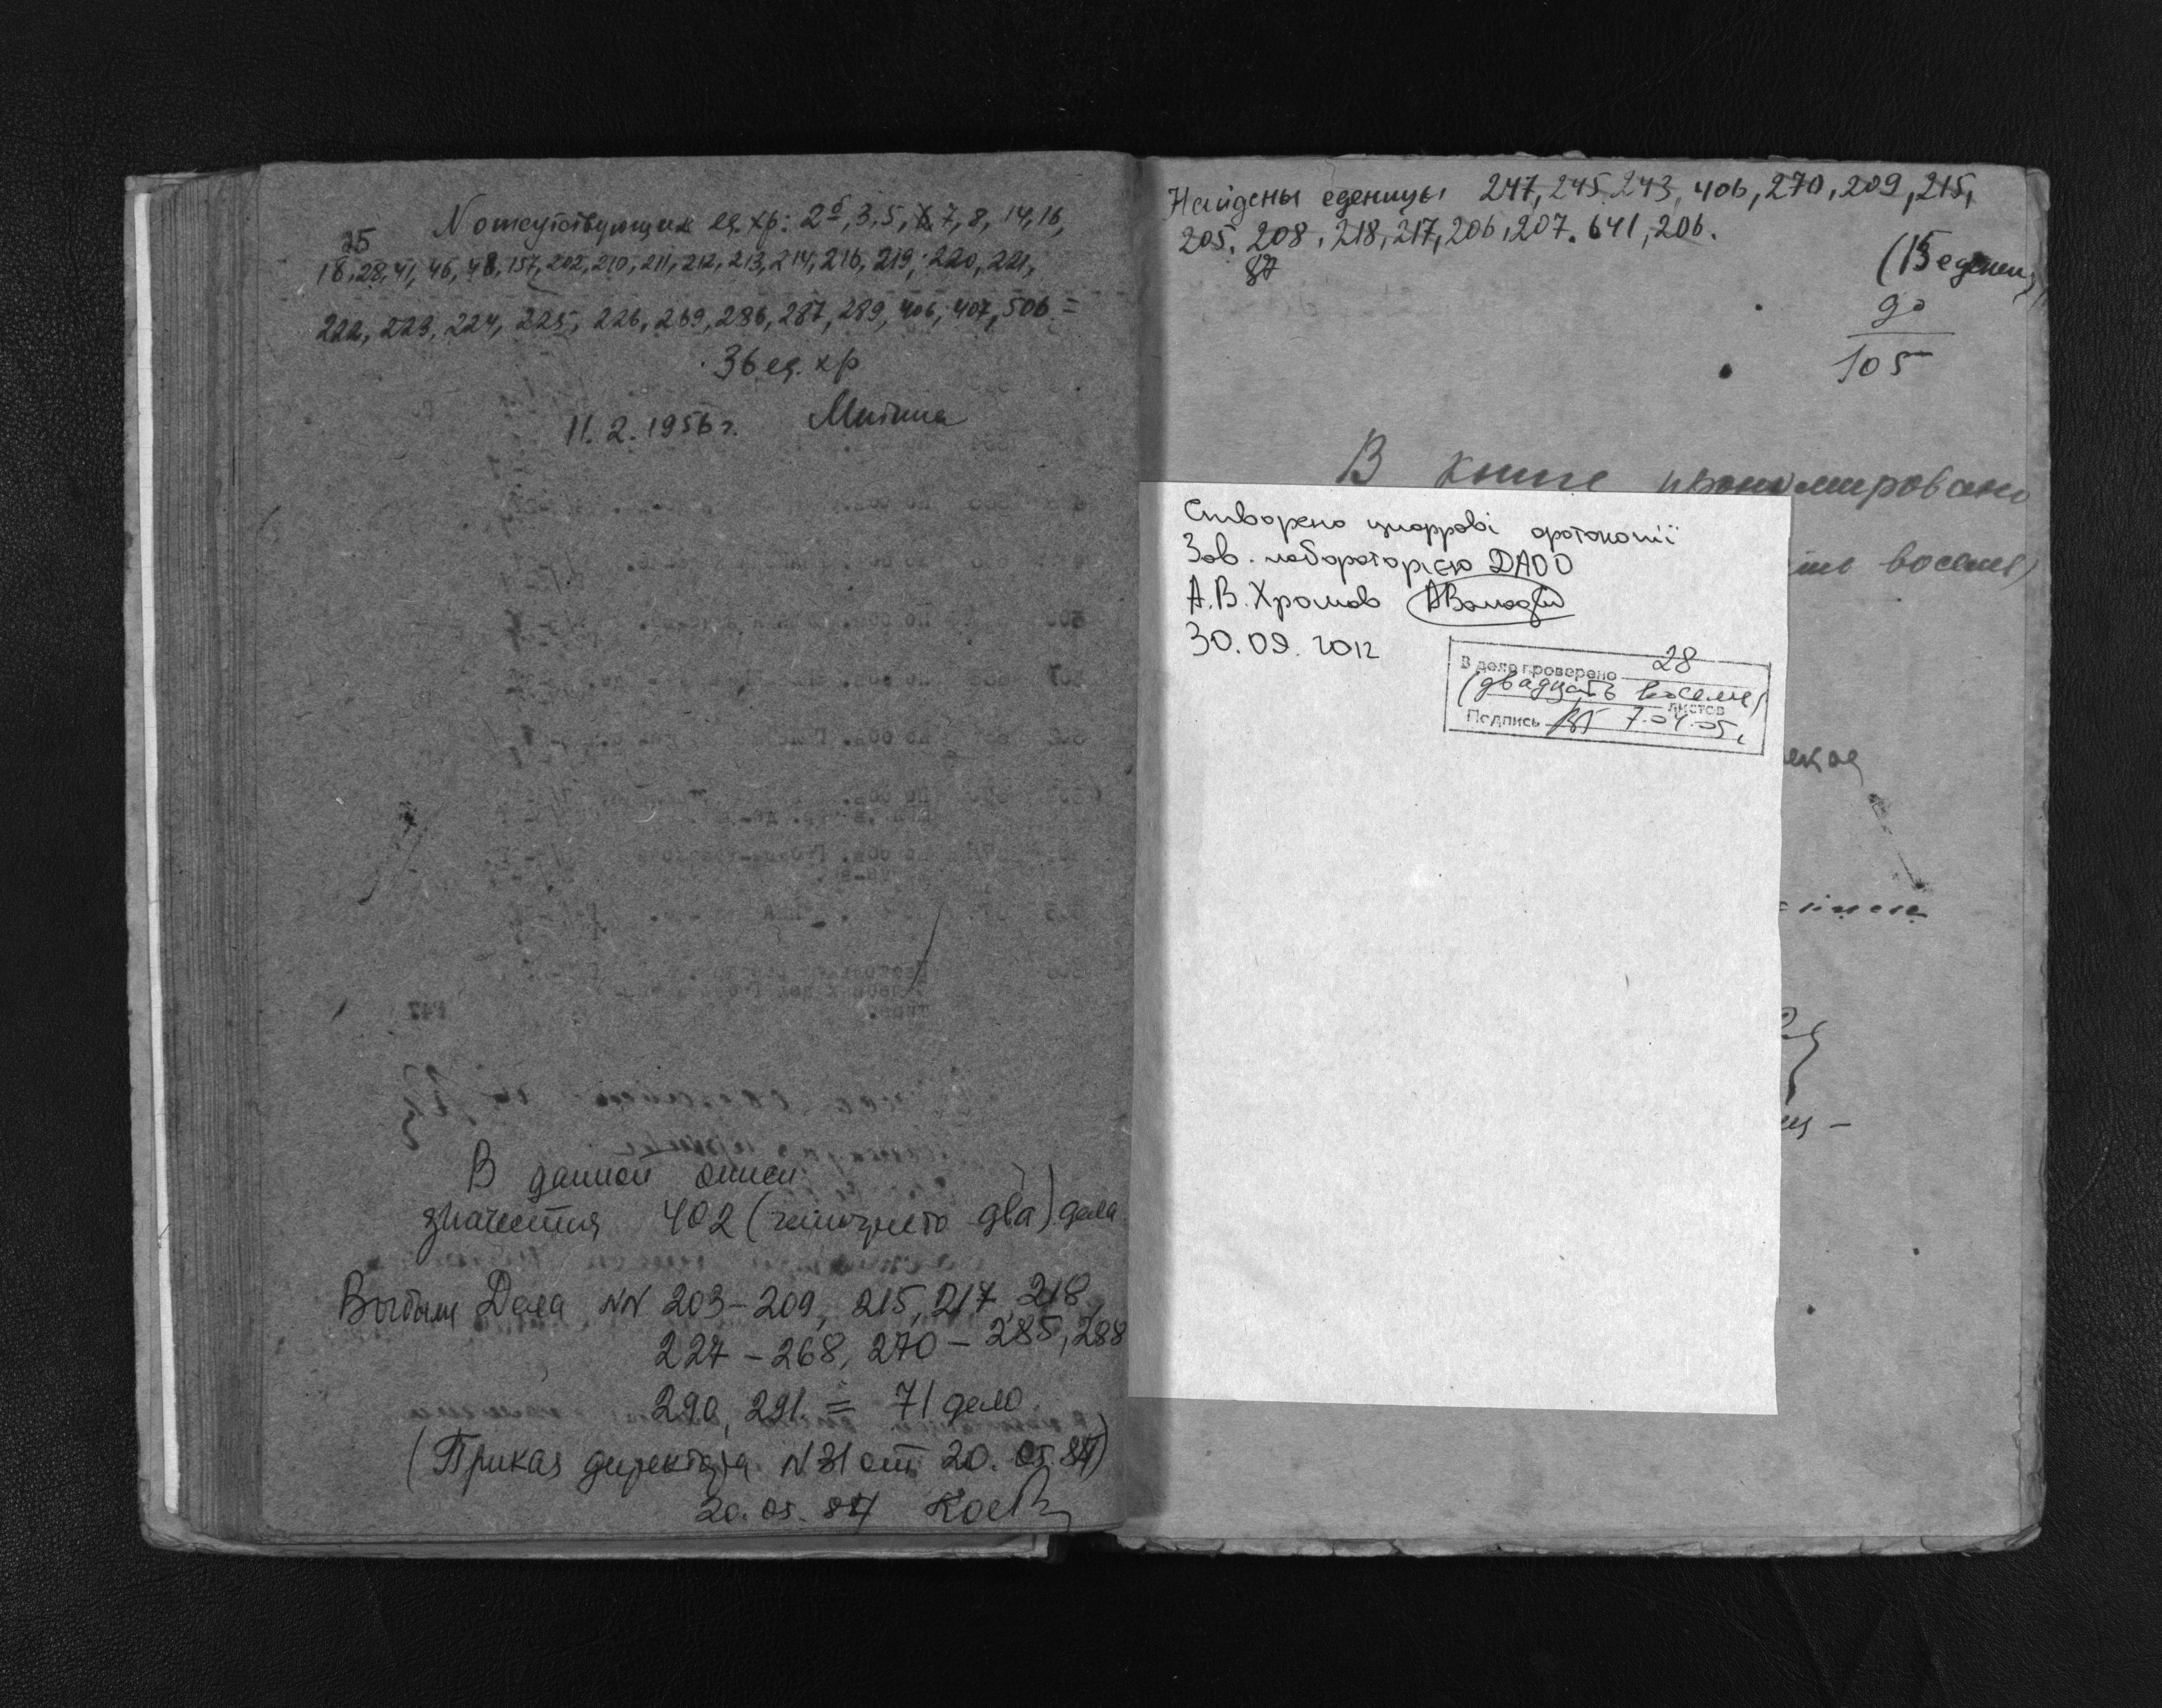 N отсутствующих ед. хр: 2б, 3, 5, 7, 8, 14, 16,
15
18, 28, 41, 46, 48, 157, 202, 210, 211, 212, 213, 214, 216, 219, 220, 221,
222, 223, 224, 225, 226, 269, 286, 287, 289, 406, 407, 506 =
36 ед. хр
11. 2. 1956 г. Митина
В данной описи
значатся 402 (четыреста два) дела
Выбыли Дела NN 203-209, 215, 217, 218,
227-268, 270-285, 288
290, 291 = 71 дело
(Приказ директора N 31 от 20. 05. 87)
20. 05. 87
Найдены еденицы 247, 245, 243, 406, 270, 209, 215,
205, 208, 218, 217, 206, 207. 641, 206.
87
(15 едениц)
90
105
В книге пронумировано
восемь)
Створено цифрові фотокопії
Зав. лабораторією ДАОО
А.В. Хромов
30.09.2012
В деле проверено 28
(двадцать восемь)
листов
Подпись 7.04.05г